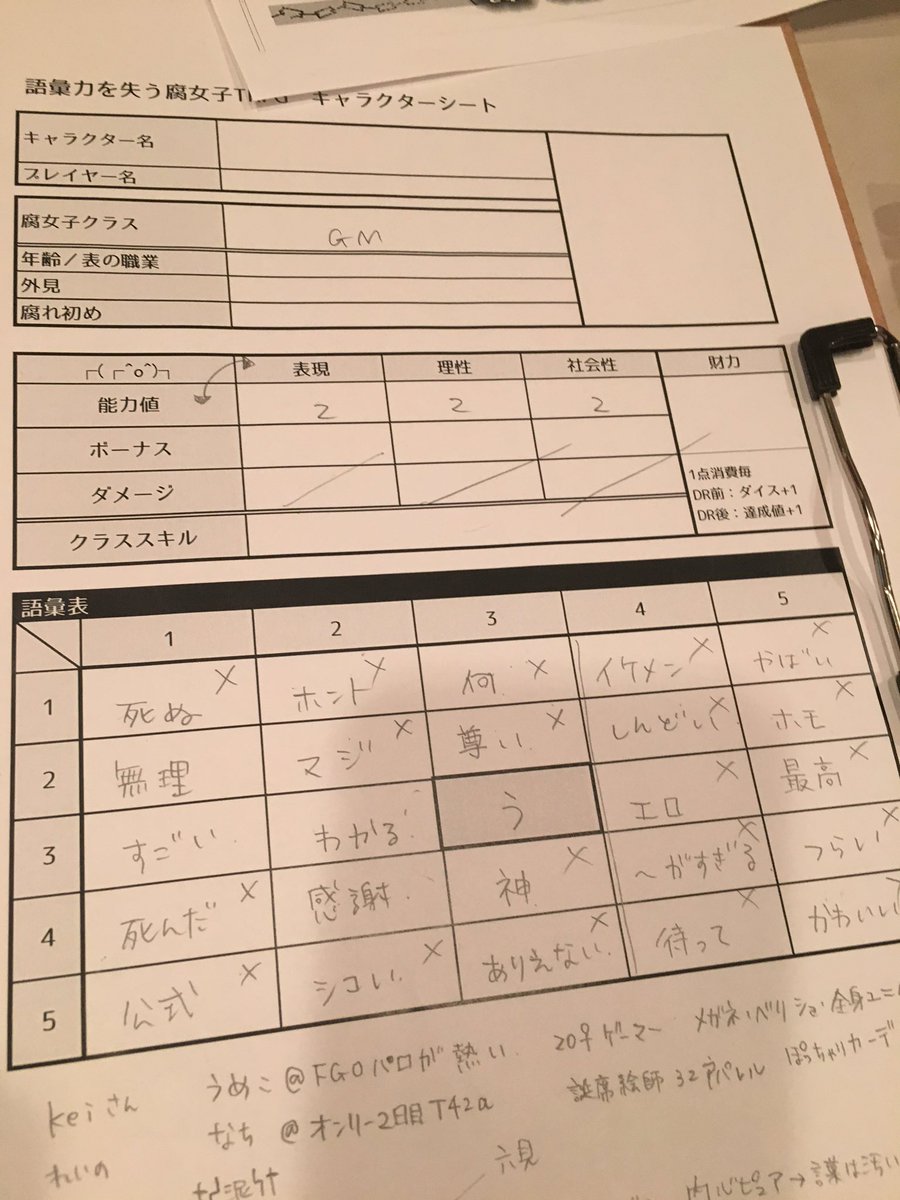 語彙力を失う腐女子TRPG キャラクターシート
キャラクター名
プレイヤー名
腐女子クラス GM
年齢／表の職業
外見
腐れ初め
┌(┌^o^)┐ 表現 理性 社会性 財力
能力値 2 2 2
ボーナス
ダメージ
1点消費毎
DR前：ダイス+1
DR後：達成値+1
クラススキル
語彙表
1 2 3 4 5
1 死ぬ× ホント× 何× イケメン× やばい×
2 無理 マジ× 尊い× しんどい× ホモ×
3 すごい わかる う エロ× 最高×
4 死んだ× 感謝 神× ～がすぎる× つらい×
5 公式× シコい× ありえない× 待って× かわいい
keiさん うめこ@FGOパロが熱い 20才ゲーマー メガネ・ベリショ 全身ユニ
れいの なち@オンリー2日目T42a 誕席絵師 32才アパレル ぽっちゃりカーデ
六見
内心ピュア→言葉は汚い